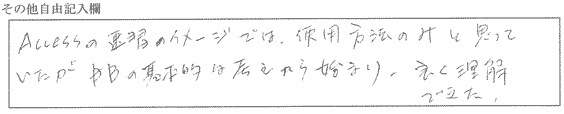 その他自由記入欄
Accessの講習のイメージでは、使用方法のみと思って
いたが DBの基本的な考えから始まり、良く理解
できた。